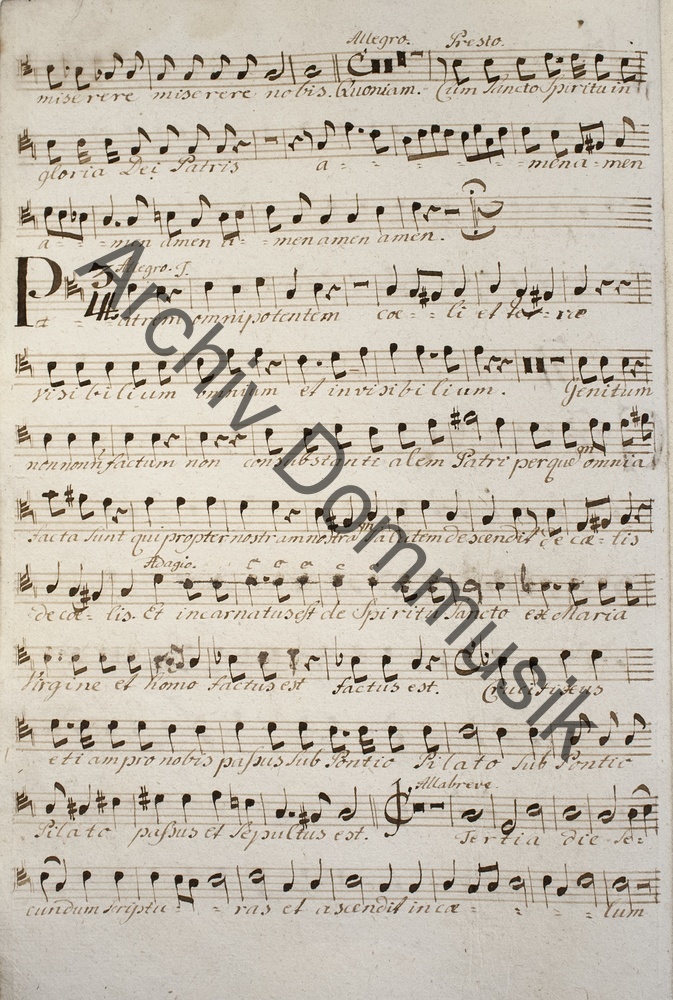 Allegro. Presto.
miserere miserere nobis. Quoniam. Cum Sancto Spiritu in
gloria Dei Patris a - - - - - - men a - men
a - - - men amen a - men amen amen.
Allegro.
Pa - - atrem omnipotentem coe - - li et ter - rae
visibilium omnium et invisibilium. Genitum
non factum non consubstantialem Patri per quem omnia
facta sunt qui propter nostram salutem descendit de cae - lis
Adagio.
de cae - lis. Et incarnatus est de Spiritu Sancto ex Maria
Virgine et homo factus est factus est. Crucifixus
etiam pro nobis passus sub Pontio Pilato sub Pontio
Allabreve.
Pilato passus et sepultus est. Tertia die se -
cundum scriptu - - ras et ascendit in cae - - - - lum
Archiv Dommusik